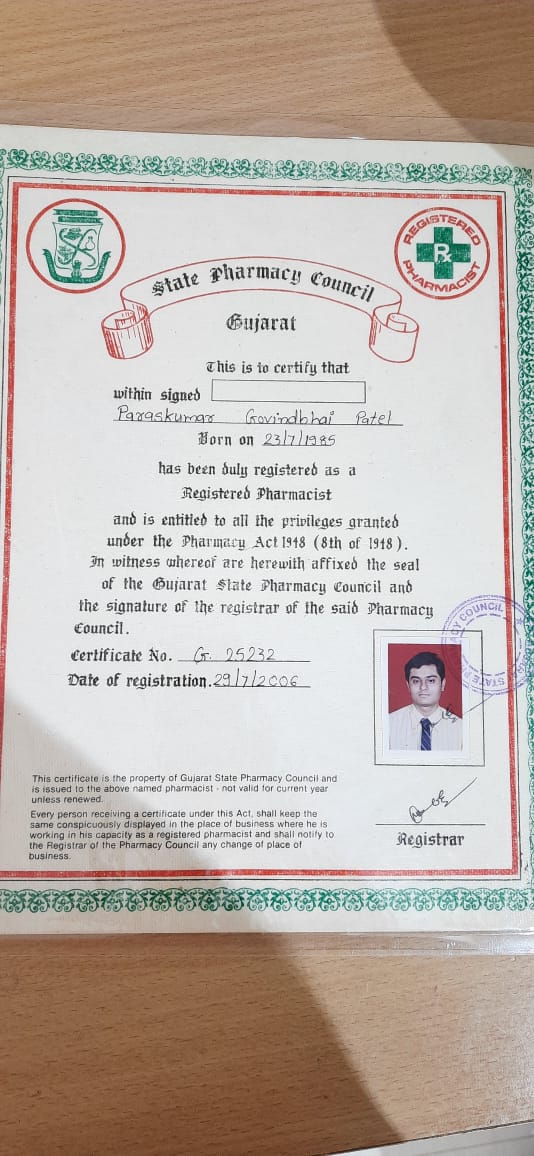 REGISTERED PHARMACIST
Rx
State Pharmacy Council
Gujarat
This is to certify that
within signed
Paraskumar Govindbhai Patel
Born on 23/7/1985
has been duly registered as a
Registered Pharmacist
and is entitled to all the privileges granted
under the Pharmacy Act 1948 (8th of 1948).
In witness whereof are herewith affixed the seal
of the Gujarat State Pharmacy Council and
the signature of the registrar of the said Pharmacy
Council.
Certificate No. G. 25232
Date of registration. 29/7/2006
PHARMACY COUNCIL
STATE
This certificate is the property of Gujarat State Pharmacy Council and
is issued to the above named pharmacist - not valid for current year
unless renewed.
Every person receiving a certificate under this Act, shall keep the
same conspicuously displayed in the place of business where he is
working in his capacity as a registered pharmacist and shall notify to
the Registrar of the Pharmacy Council any change of place of
business.
Registrar